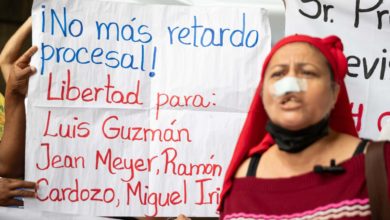 ¡No más retardo
procesal!
Libertad para:
Luis Guzmán
Jean Meyer, Ramón
Cardozo, Miguel
Sr. Pr